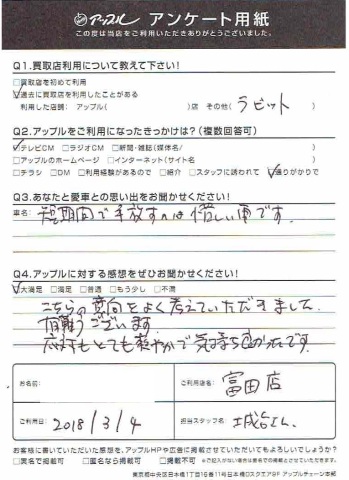 アップル アンケート用紙
この度は当店をご利用いただきありがとうございました。
Q1.買取店利用について教えて下さい!
□買取店を初めて利用
☑過去に買取店を利用したことがある
利用した店舗: アップル( )店 その他( ラビット )
Q2.アップルをご利用になったきっかけは?(複数回答可)
☑テレビCM □ラジオCM □新聞・雑誌(媒体名/ )
□アップルのホームページ □インターネット(サイト名 )
□チラシ □DM □利用経験があるので □紹介 □スタッフに誘われて ☑通りがかりで
Q3.あなたと愛車との思い出をお聞かせください!
車名: 短期間で手放すのは惜しい車です。
Q4.アップルに対する感想をぜひお聞かせください!
☑大満足 □満足 □普通 □もう少し □不満
こちらの意向をよく考えていただきました。
有難うございます。
応対もとても爽やかで気持ち良かったです。
お名前:
ご利用店名: 富田店
ご利用日: 2018/3/4
担当スタッフ名:
お客様に書いていただいた感想を、アップルHPや広告に掲載させていただいてもよろしいでしょうか?
□実名で掲載可 □匿名なら掲載可 □掲載不可 ※ご記入がない場合は匿名での掲載とさせていただきます。
東京都中央区日本橋1丁目16番11号日本橋DスクエアBF アップルチェーン本部